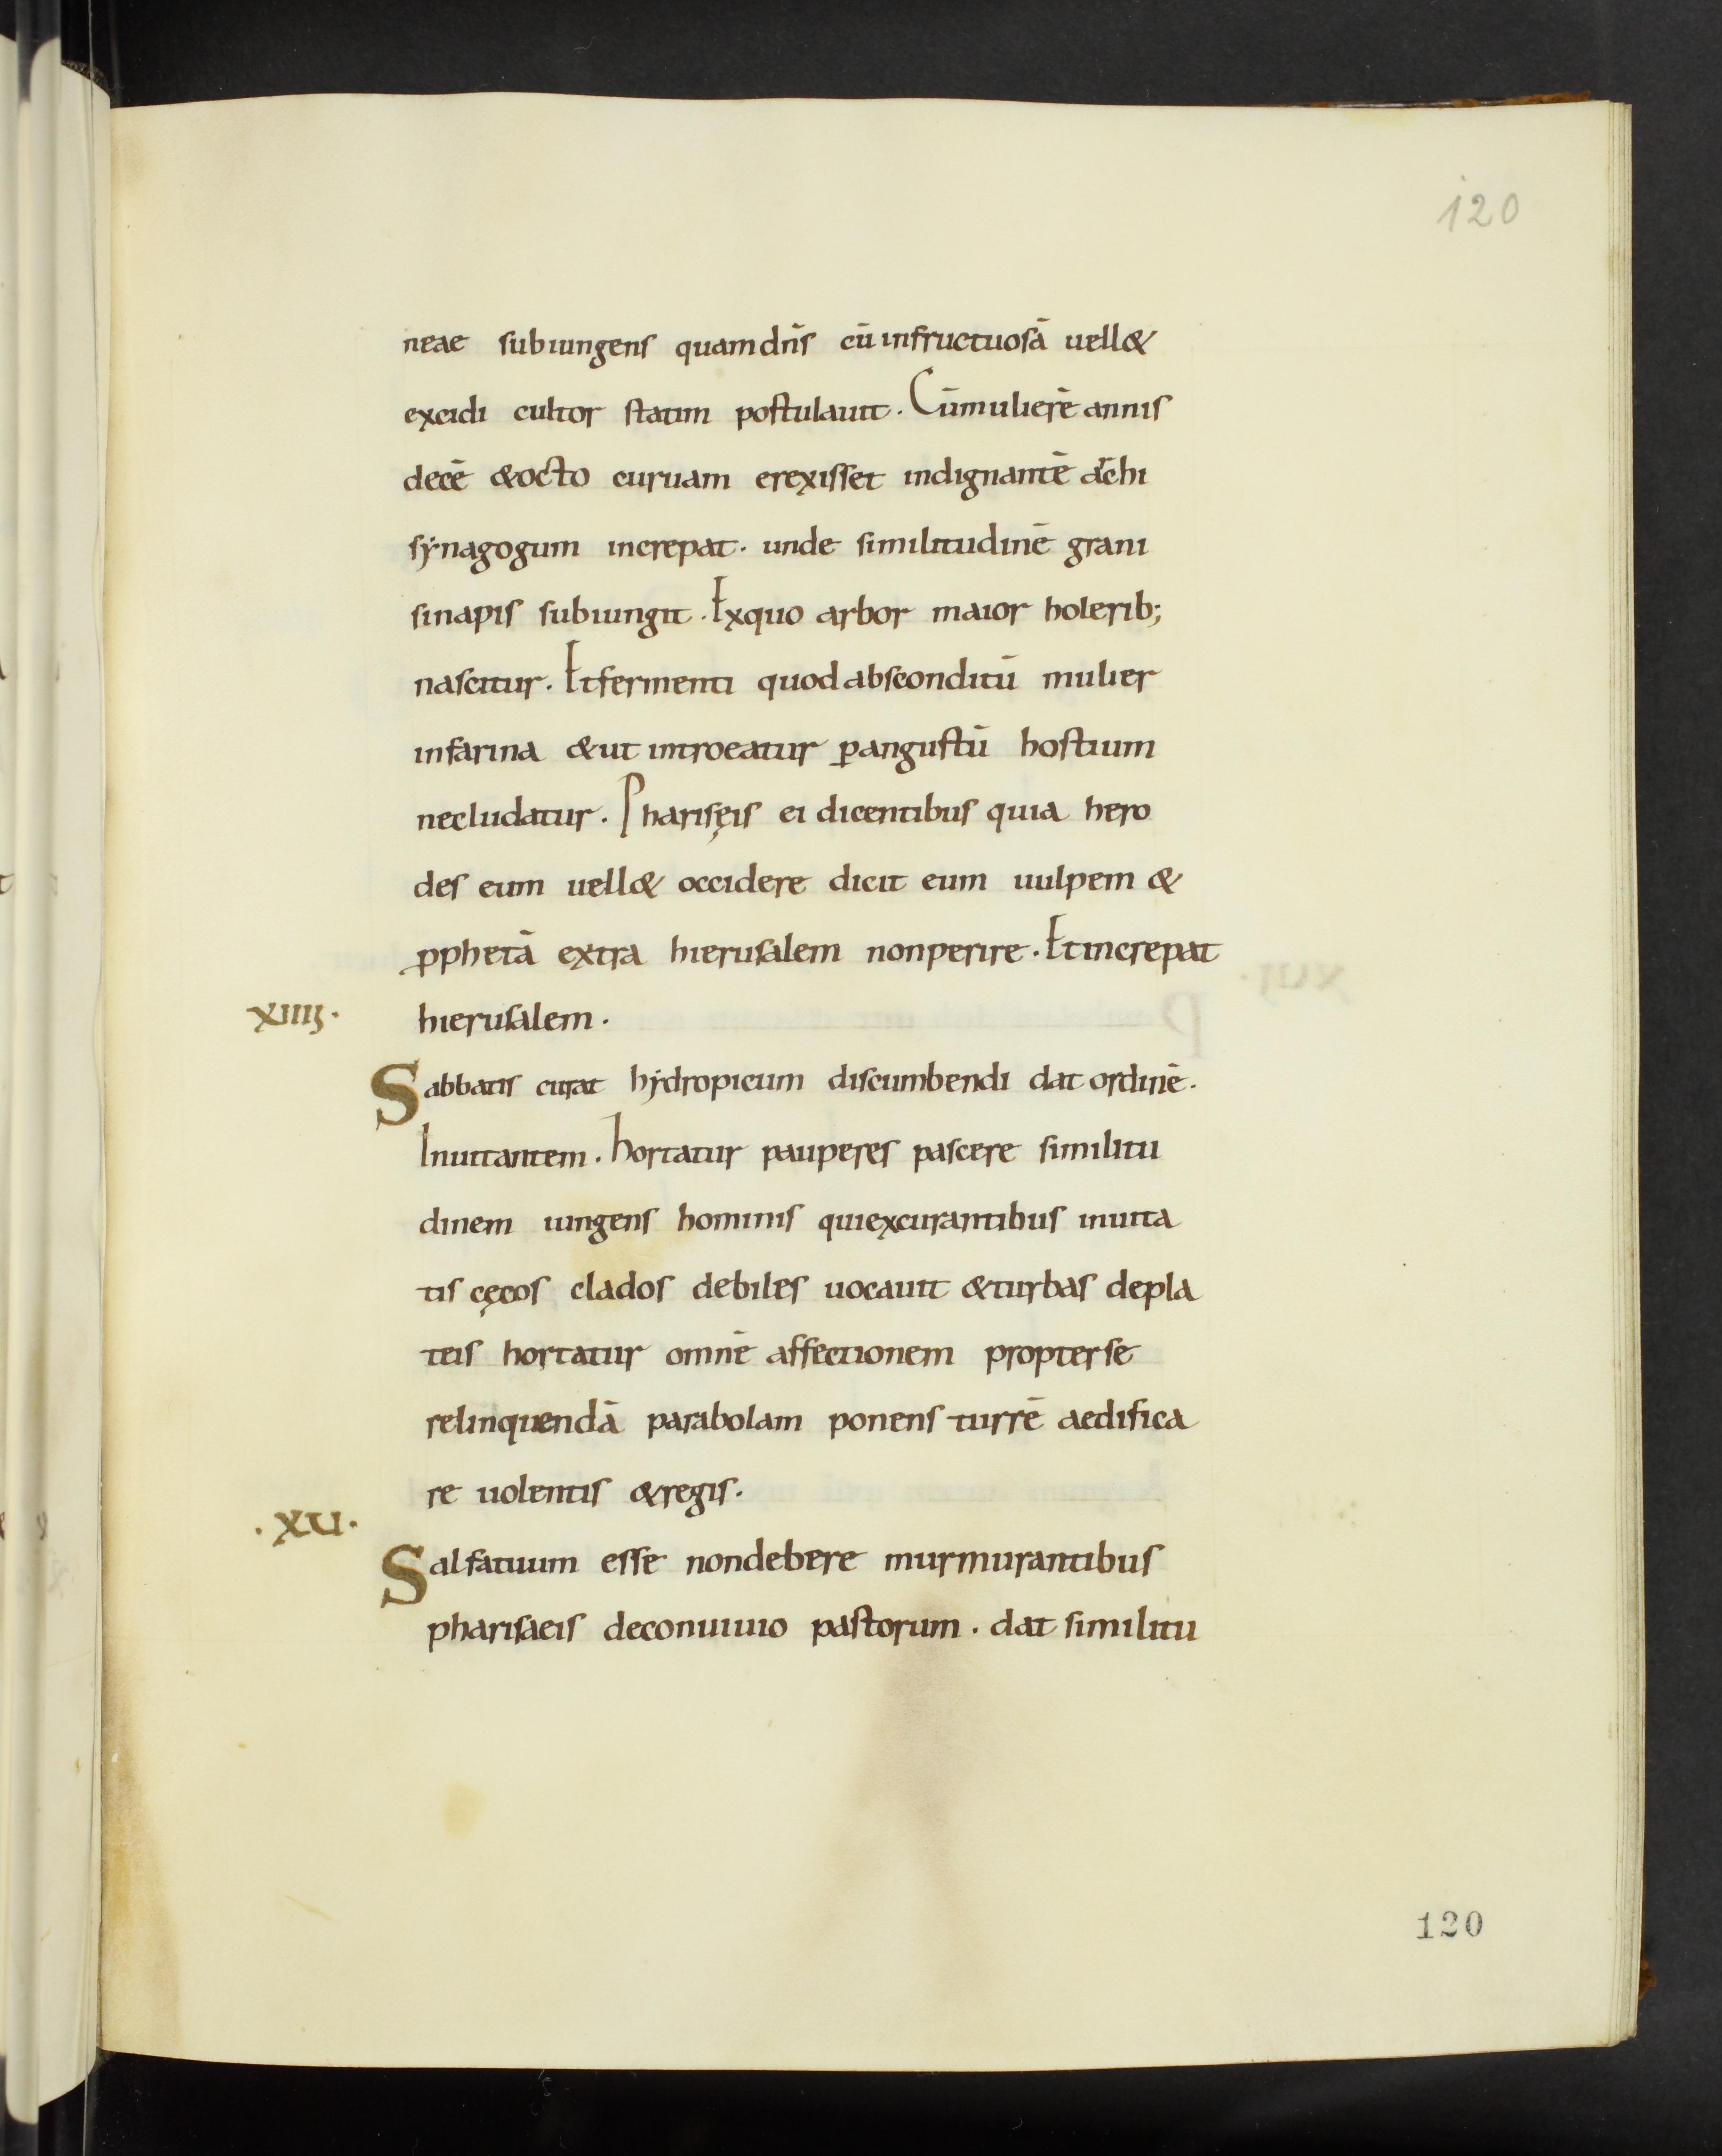 120
neae subiungens quamdn̄s cū infructuosā uell&
excidi cultor statim postulauit. Cūmulierē annis
decē &octo curuam erexisset indignantē archi
sẏnagogum increpat. unde similitudinē grani
sinapis subiungit. Exquo arbor maior holerib;
nascitur. Etfermenti quod absconditū mulier
infarina &ut introeatur ꝑangustū hostium
necludatur. Pharisęis ei dicentibus quia hero
des eum uell& occidere dicit eum uulpem &
ꝓphetā extra hierusalem nonperire. Etincrepat
XIIII.
hierusalem.
Sabbatis curat hẏdropicum discumbendi dat ordinē.
Inuitantem. hortatur pauperes pascere similitu
dinem iungens hominis quiexcurantibus inuita
tis cęcos clados debiles uocauit &turbas depla
teis hortatur omnē affectionem propterse
relinquendā parabolam ponens turrē aedifica
re uolentis &regis.
.XU.
Salfatuum esse nondebere murmurantibus
pharisaeis deconuiuio pastorum. dat similitu
120